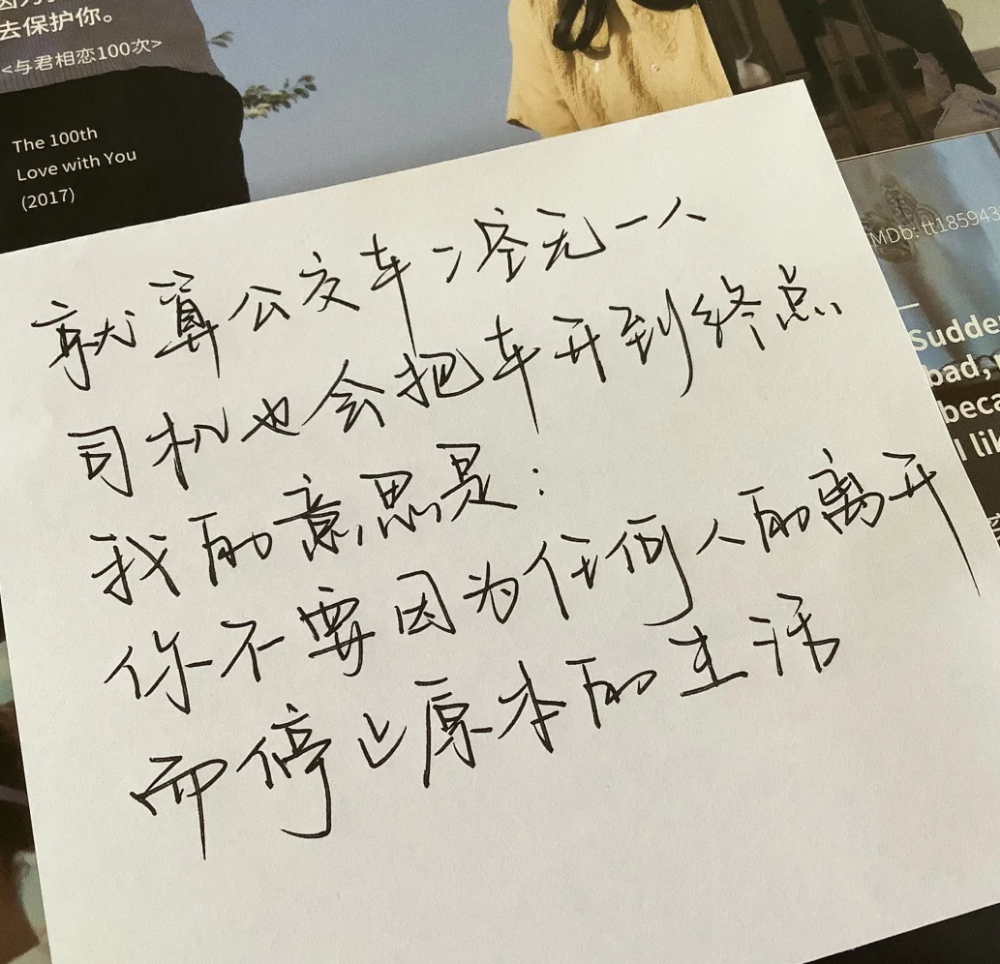 去保护你。
<与君相恋100次>
The 100th
Love with You
(2017)
就算公交车上空无一人
司机也会把车开到终点
我的意思是：
你不要因为任何人的离开
而停止原本的生活
MDb: tt185943
Sudde
bad,
beca
I lik